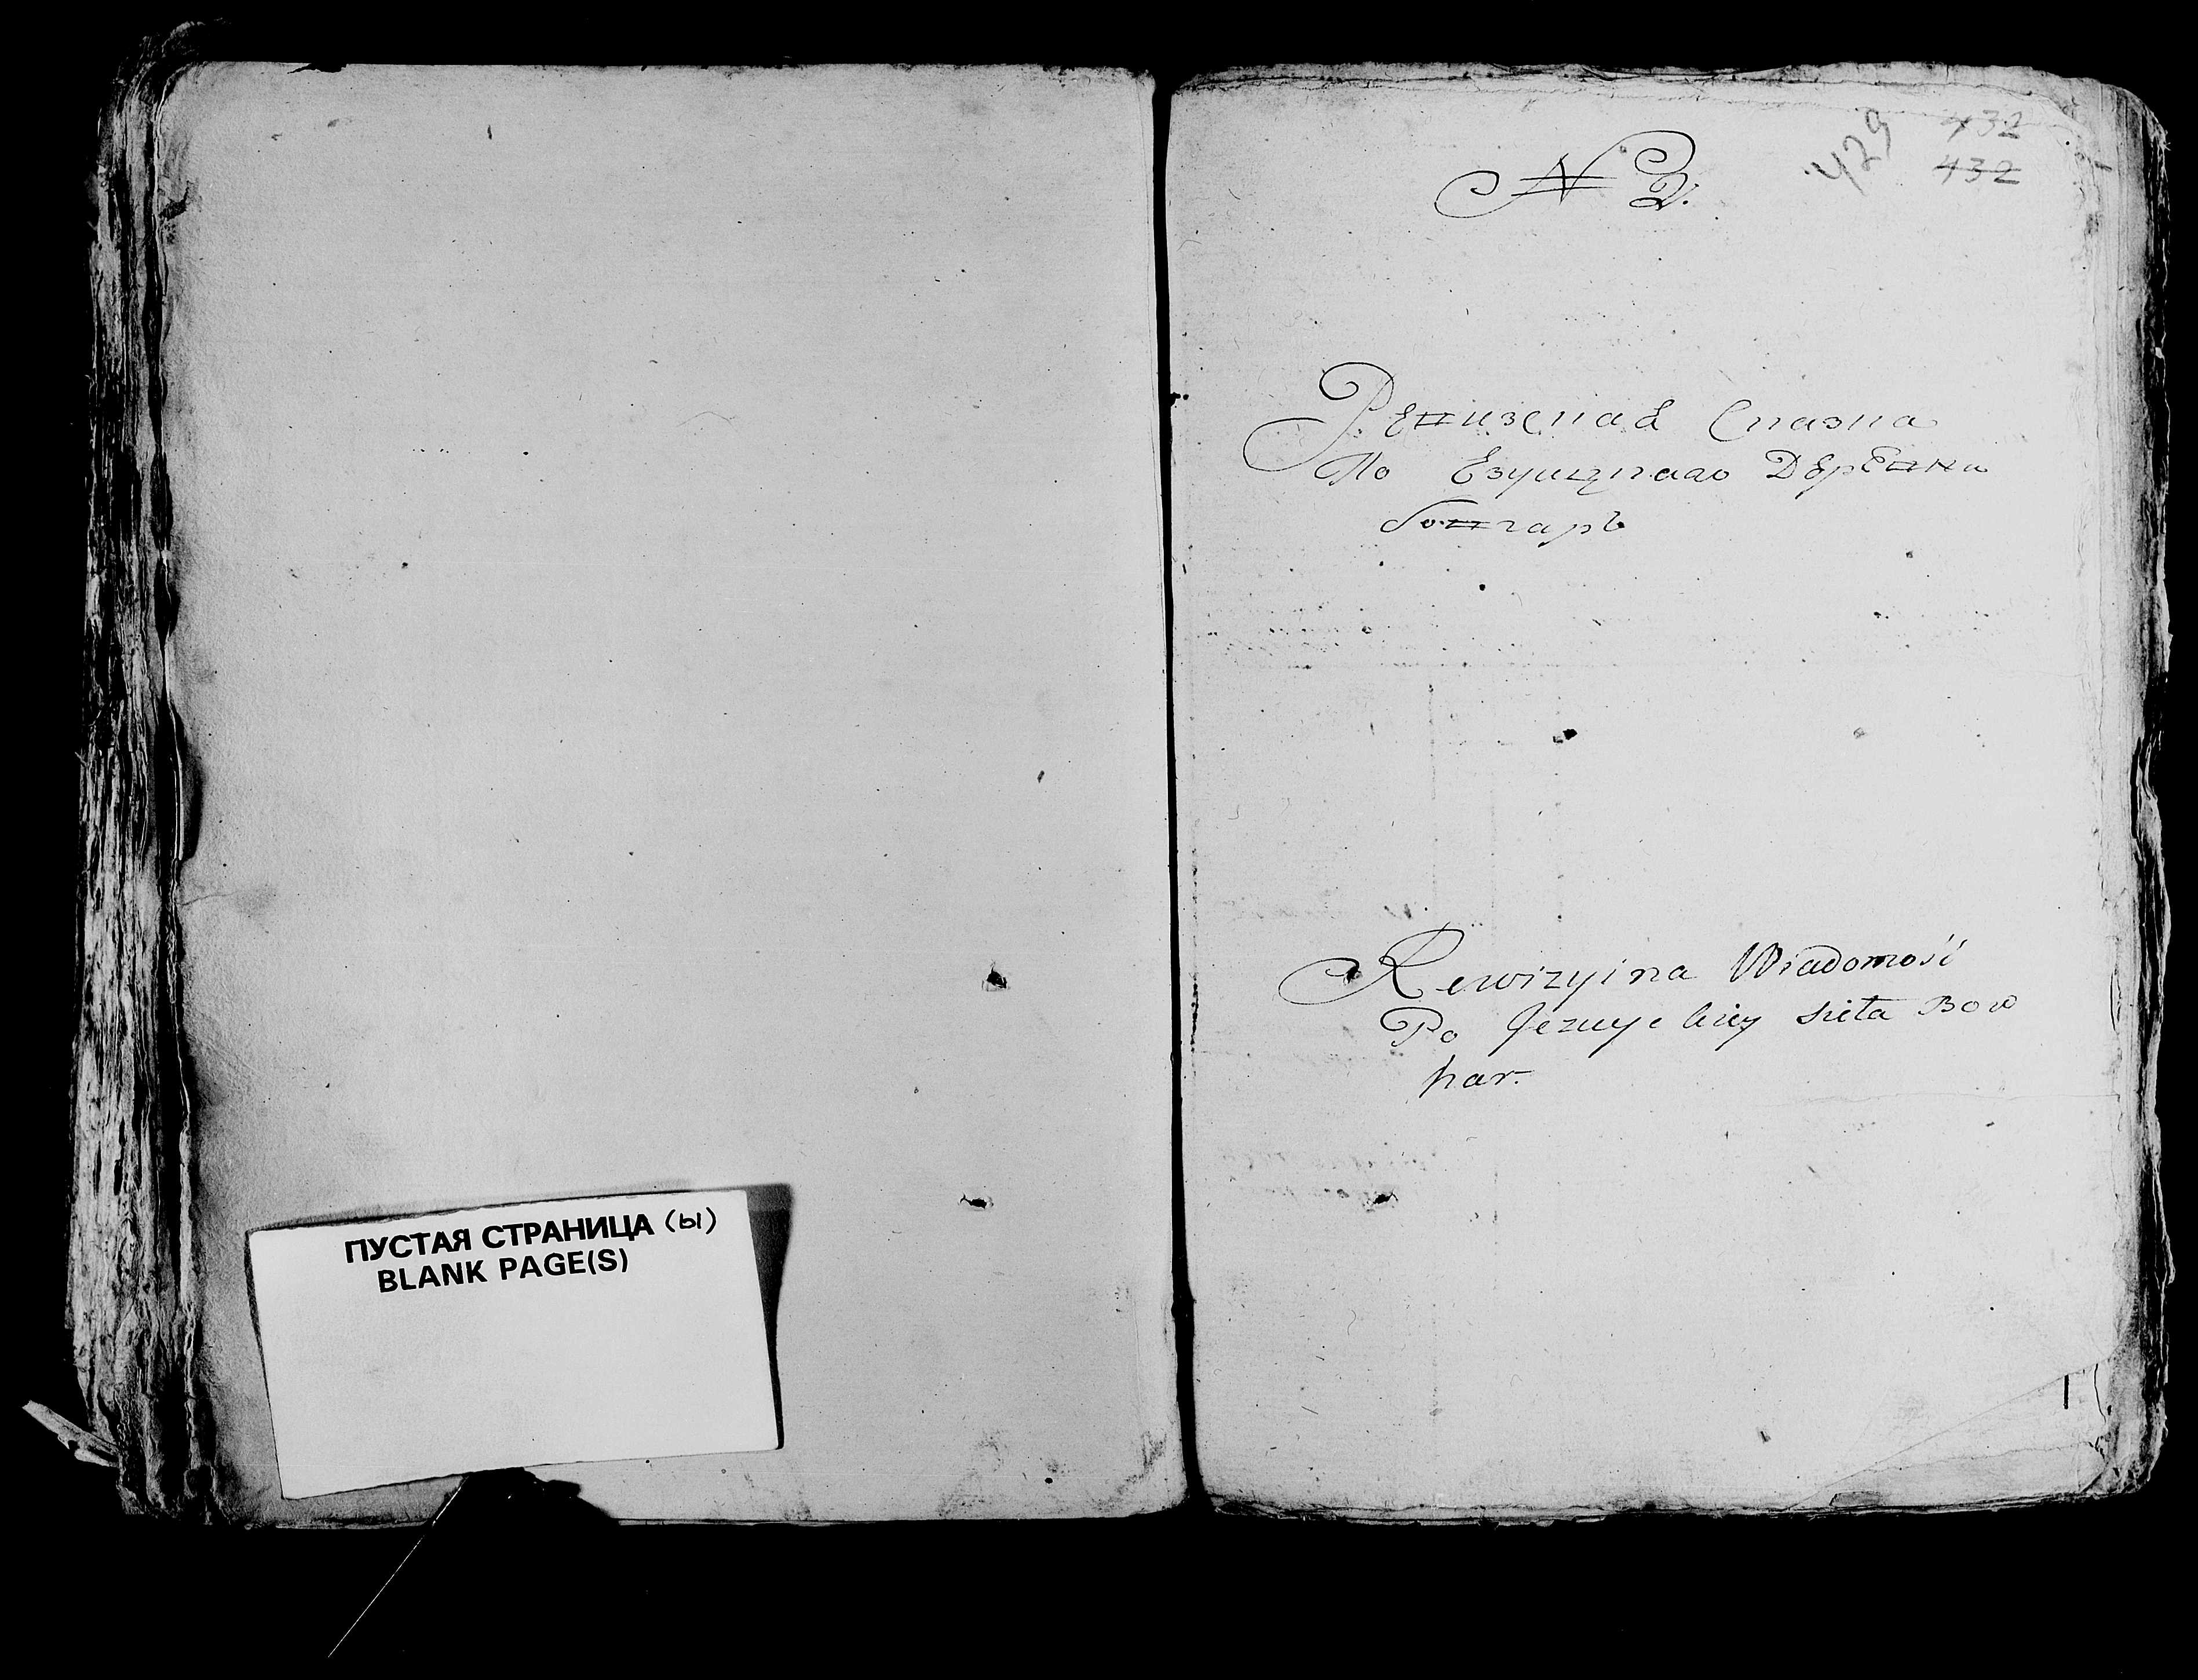 ПУСТАЯ СТРАНИЦА (ы)
BLANK PAGE(S)
429
432
432
N 2.
Ревизская Сказка
По Езуицкаго Деревни
Бовгаръ
Rewizyina Wiadomość
Po Jezuyckiey sieła Bow
har.